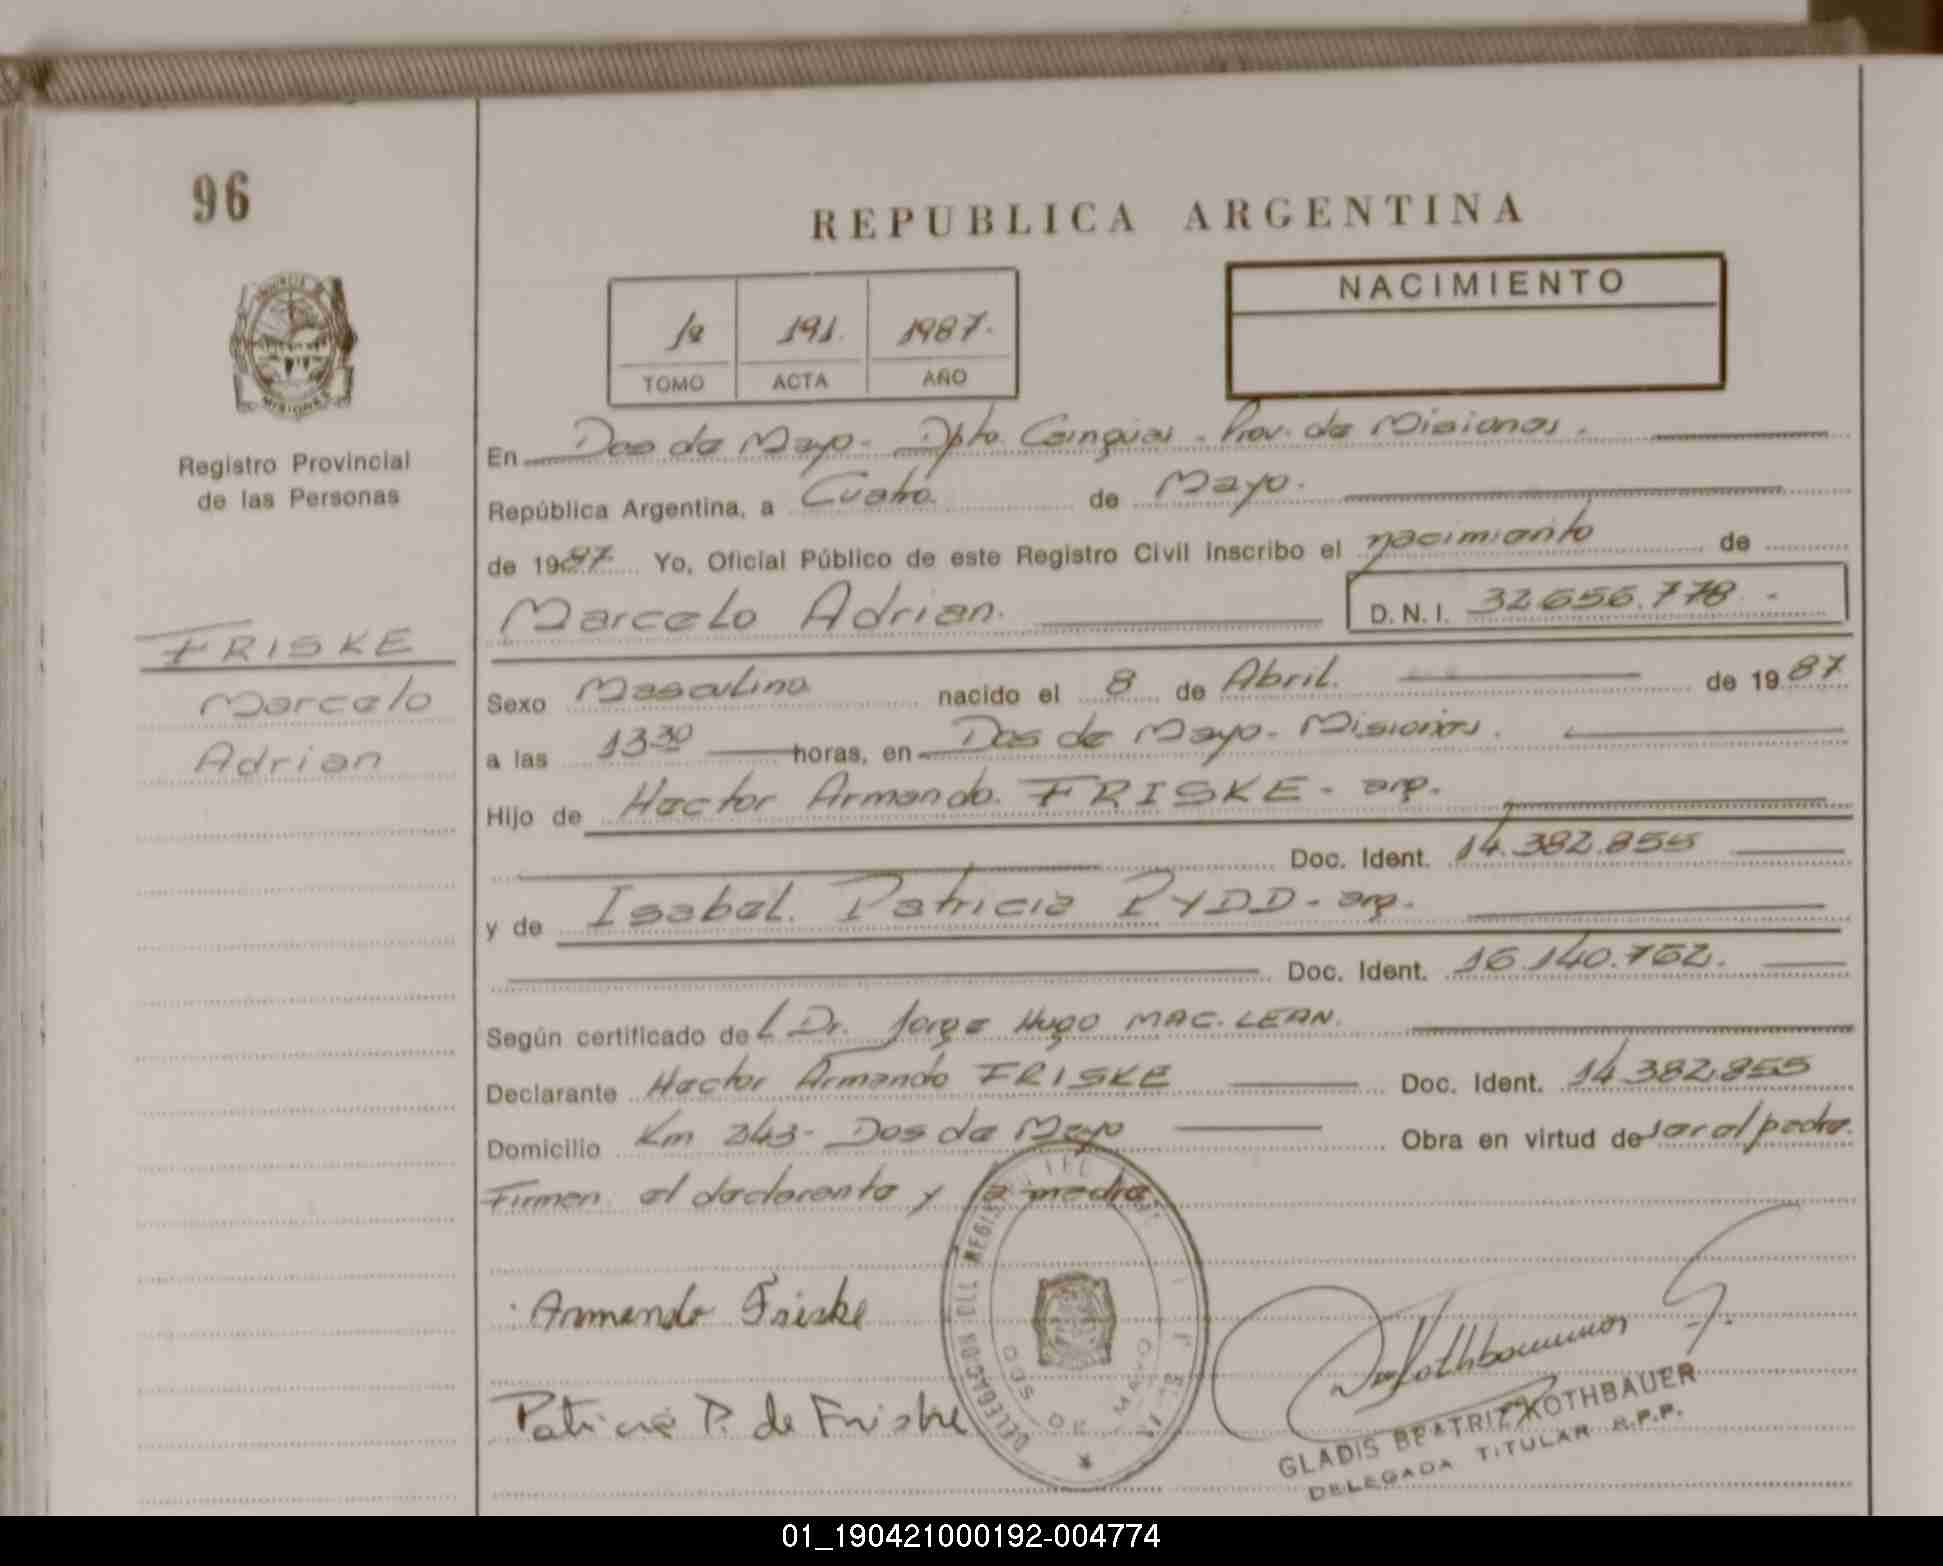 96
REPUBLICA ARGENTINA
NACIMIENTO
1º 191. 1987.
TOMO ACTA AÑO
MISIONES
Registro Provincial
de las Personas
FRISKE
Marcelo
Adrian
En Dos de Mayo - Dpto. Cainguas - Prov. de Misiones.
República Argentina, a Cuatro de Mayo.
de 1987 Yo, Oficial Público de este Registro Civil inscribo el nacimiento de
Marcelo Adrian. D. N. I. 32.656.778 -
Sexo Masculino nacido el 8 de Abril. de 1987
a las 13 30 horas, en Dos de Mayo - Misiones.
Hijo de Hector Armando FRISKE - arg.
Doc. Ident. 14.382.855
y de Isabel Patricia PYDD - arg.
Doc. Ident. 16.140.762.
Según certificado del Dr. Jorge Hugo MAC. LEAN.
Declarante Hector Armando FRISKE Doc. Ident. 14.382.855
Domicilio Km 243 - Dos de Mayo Obra en virtud de ser el padre.
Firman el declarante y la madre
Armando Friske
Patricia P. de Friske
DOS DE MAYO
GLADIS BEATRIZ ROTHBAUER
DELEGADA TITULAR R.P.P.
01_190421000192-004774